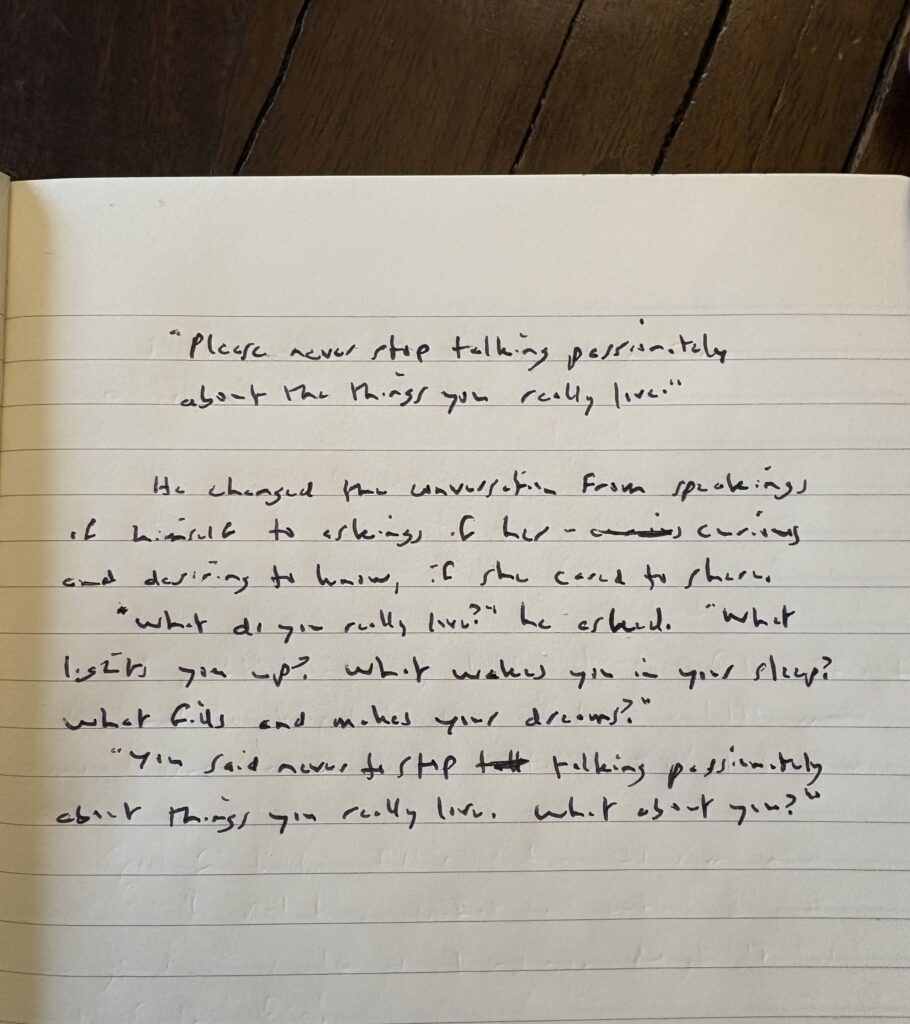 "Please never stop talking passionately
about the things you really love."
He changed the conversation from speakings
of himself to askings of her - curious
and desiring to know, if she cared to share.
"What do you really love?" he asked. "What
lights you up? What wakes you in your sleep?
What fills and makes your dreams?"
"You said never to stop talking passionately
about things you really love. What about you?"